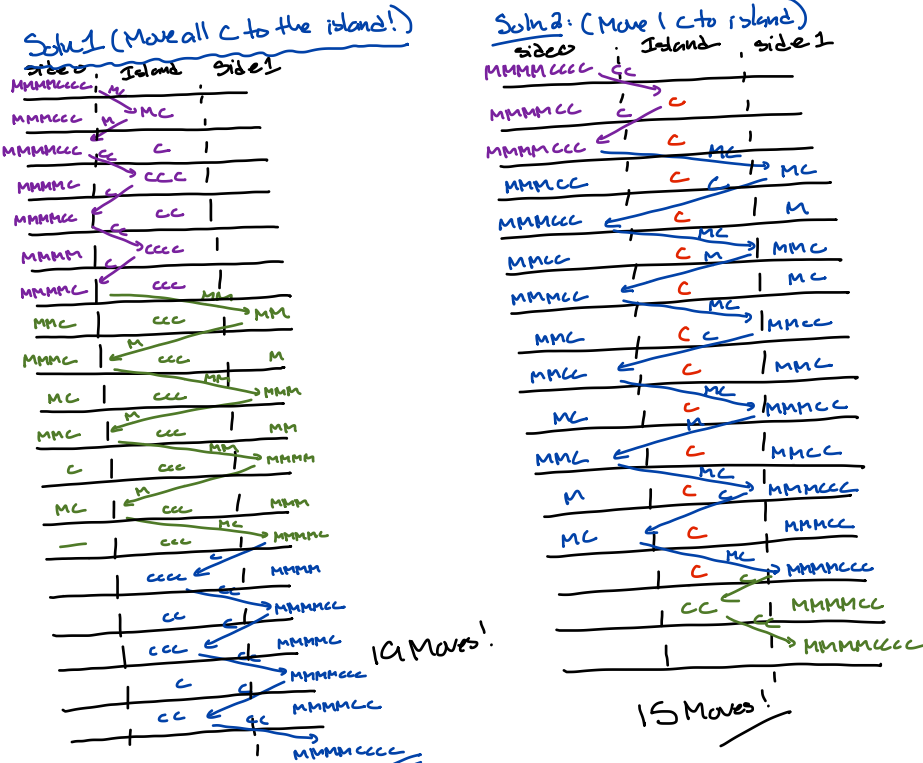 Soln 1 (Move all C to the island!)
side 0 Island Side 1
MMMMCCCC MC
MMMCCC M MC
MMMMCCC CC C
MMMMC C CCC
MMMMCC CC CC
MMMM C CCCC
MMMMC CCC MM
MMC CCC MM
MMMC M CCC M
MC CCC MM MMM
MMC M CCC MM
C CCC MM MMMM
MC M CCC MMM
— CCC MC MMMMC
CCCC C MMMM
CC CC MMMMCC
CCC C MMMMC
C CC MMMMCCC
CC C MMMMCC
CC MMMMCCCC
19 Moves!
Soln 2: (Move 1 C to island)
side 0 Island side 1
MMMMCCCC CC
MMMMCC C C
MMMMCCC C MC
MMMCC C C MC
MMMMCCC C M
MMCC C MC MMC
MMMCC C M MC
MMC C MC MMCC
MMCC C C MMC
MC C MC MMMCC
MMC C M MMCC
M C MC C MMMCCC
MC C MMMCC
C MC MMMMCCC
CC C MMMMCC
CC MMMMCCCC
15 Moves!